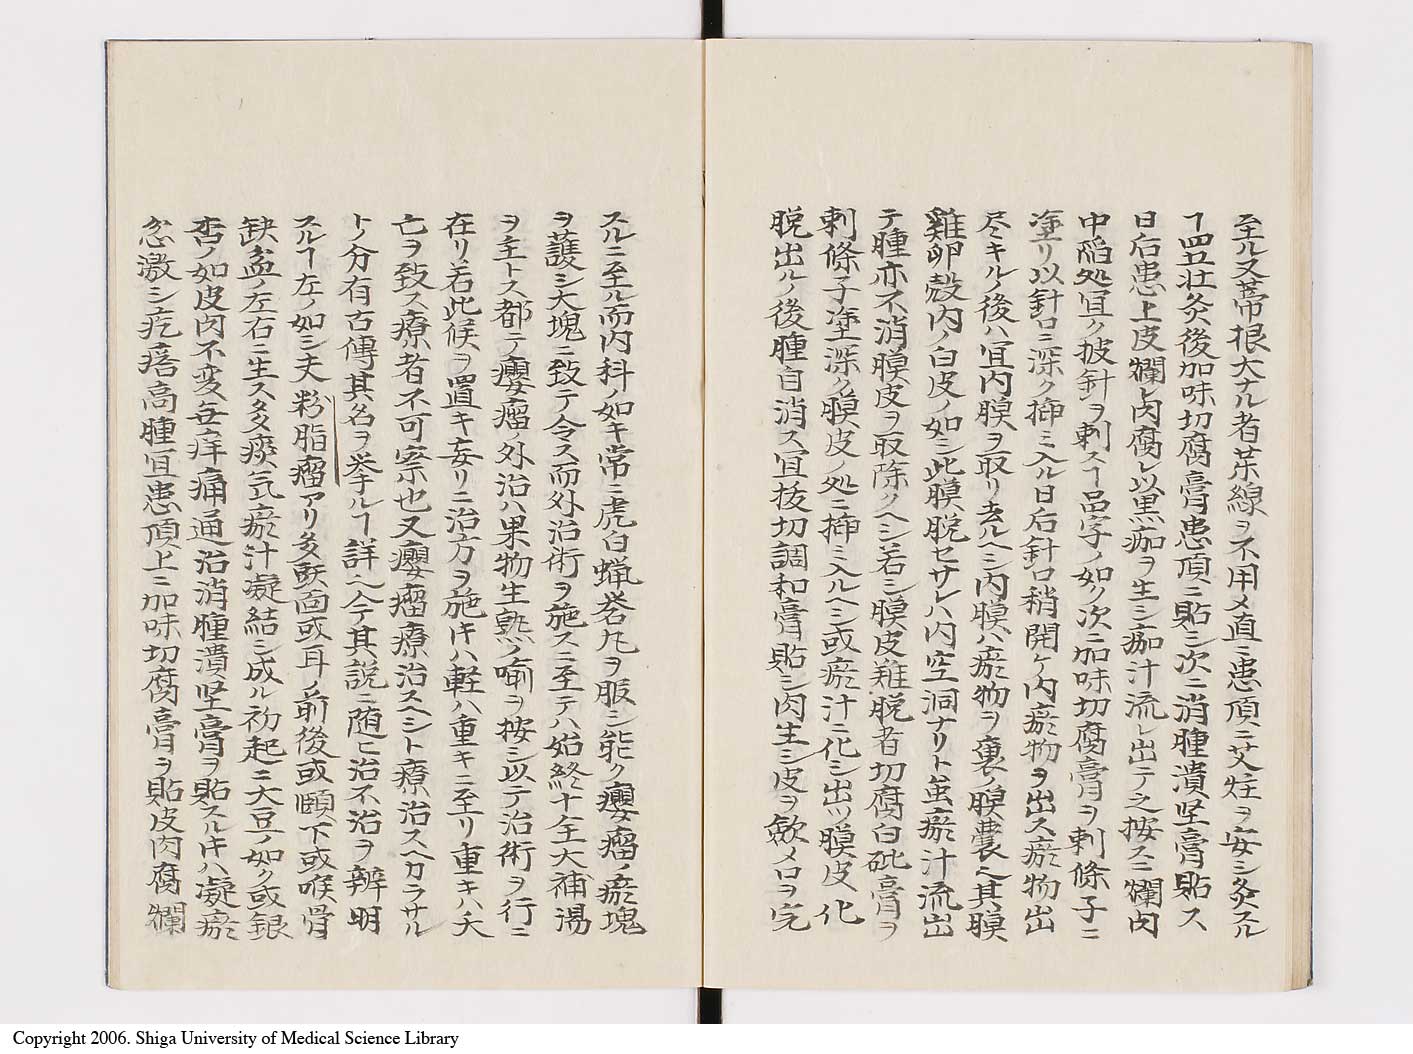 至ル又蔕根大ナル者芫線ヲ不用〆直ニ患頂ニ艾炷ヲ安シ灸スル
ヿ四五壮灸後加味切腐膏患頂ニ貼シ次ニ消腫潰堅膏貼ス
日后患上皮爛レ肉腐レ以黒痂ヲ生シ痂汁流レ出テ之按スニ爛肉
中陥処宜ク披針ヲ刺スヿ品字ノ如ク次ニ加味切腐膏ヲ刺條子ニ
塗リ以針口ニ深ク挿ミ入ル日后針口稍開ケ内瘀物ヲ出ス瘀物出
尽キルノ後ハ宜内膜ヲ取リ去ルヘシ内膜ハ瘀物ヲ裏ノ膜嚢ヘ其膜
雞卵殻内ノ白皮ノ如シ此膜脱セサレハ内空洞ナリト虽瘀汁流出
テ腫亦不消膜皮ヲ取除クヘシ若シ膜皮難脱者切腐白砒膏ヲ
刺條子塗深ク膜皮ノ処ニ挿ミ入ルヘシ或瘀汁ニ化シ出ツ膜皮化
脱出ルノ後腫自消ス宜抜切調和膏貼シ肉生シ皮ヲ歛メ口ヲ完
スルニ至ル而内科ノ如キ常ニ虎白蝋礬丸ヲ服シ能ク癭瘤ノ瘀塊
ヲ護シ大塊ニ致テ令ス而外治術ヲ施スニ至テハ始終十全大補湯
ヲ主トス都テ癭瘤ノ外治ハ果物生熟ノ喩ヲ按シ以テ治術ヲ行ニ
在リ若此候ヲ置キ妄リニ治方ヲ施キハ軽ハ重キニ至リ重キハ夭
亡ヲ致ス療者不可察也又癭瘤療治スヘシト療治スヘカラサル
トノ分有古傳其名ヲ挙ルヿ詳ヘ今テ其説ニ随ヒ治不治ヲ辨明
スルヿ左ノ如シ夫粉脂瘤アリ多頭面或耳ノ前後或頤下或喉骨
缺盆ノ左右ニ生ス多痰気瘀汁凝結シ成ル初起ニ大豆ノ如ク或銀
杏ノ如皮肉不変無痒痛通治消腫潰堅膏ヲ貼スルキハ凝瘀
忿激シ疙瘩高腫宜患頂上ニ加味切腐膏ヲ貼皮肉腐爛